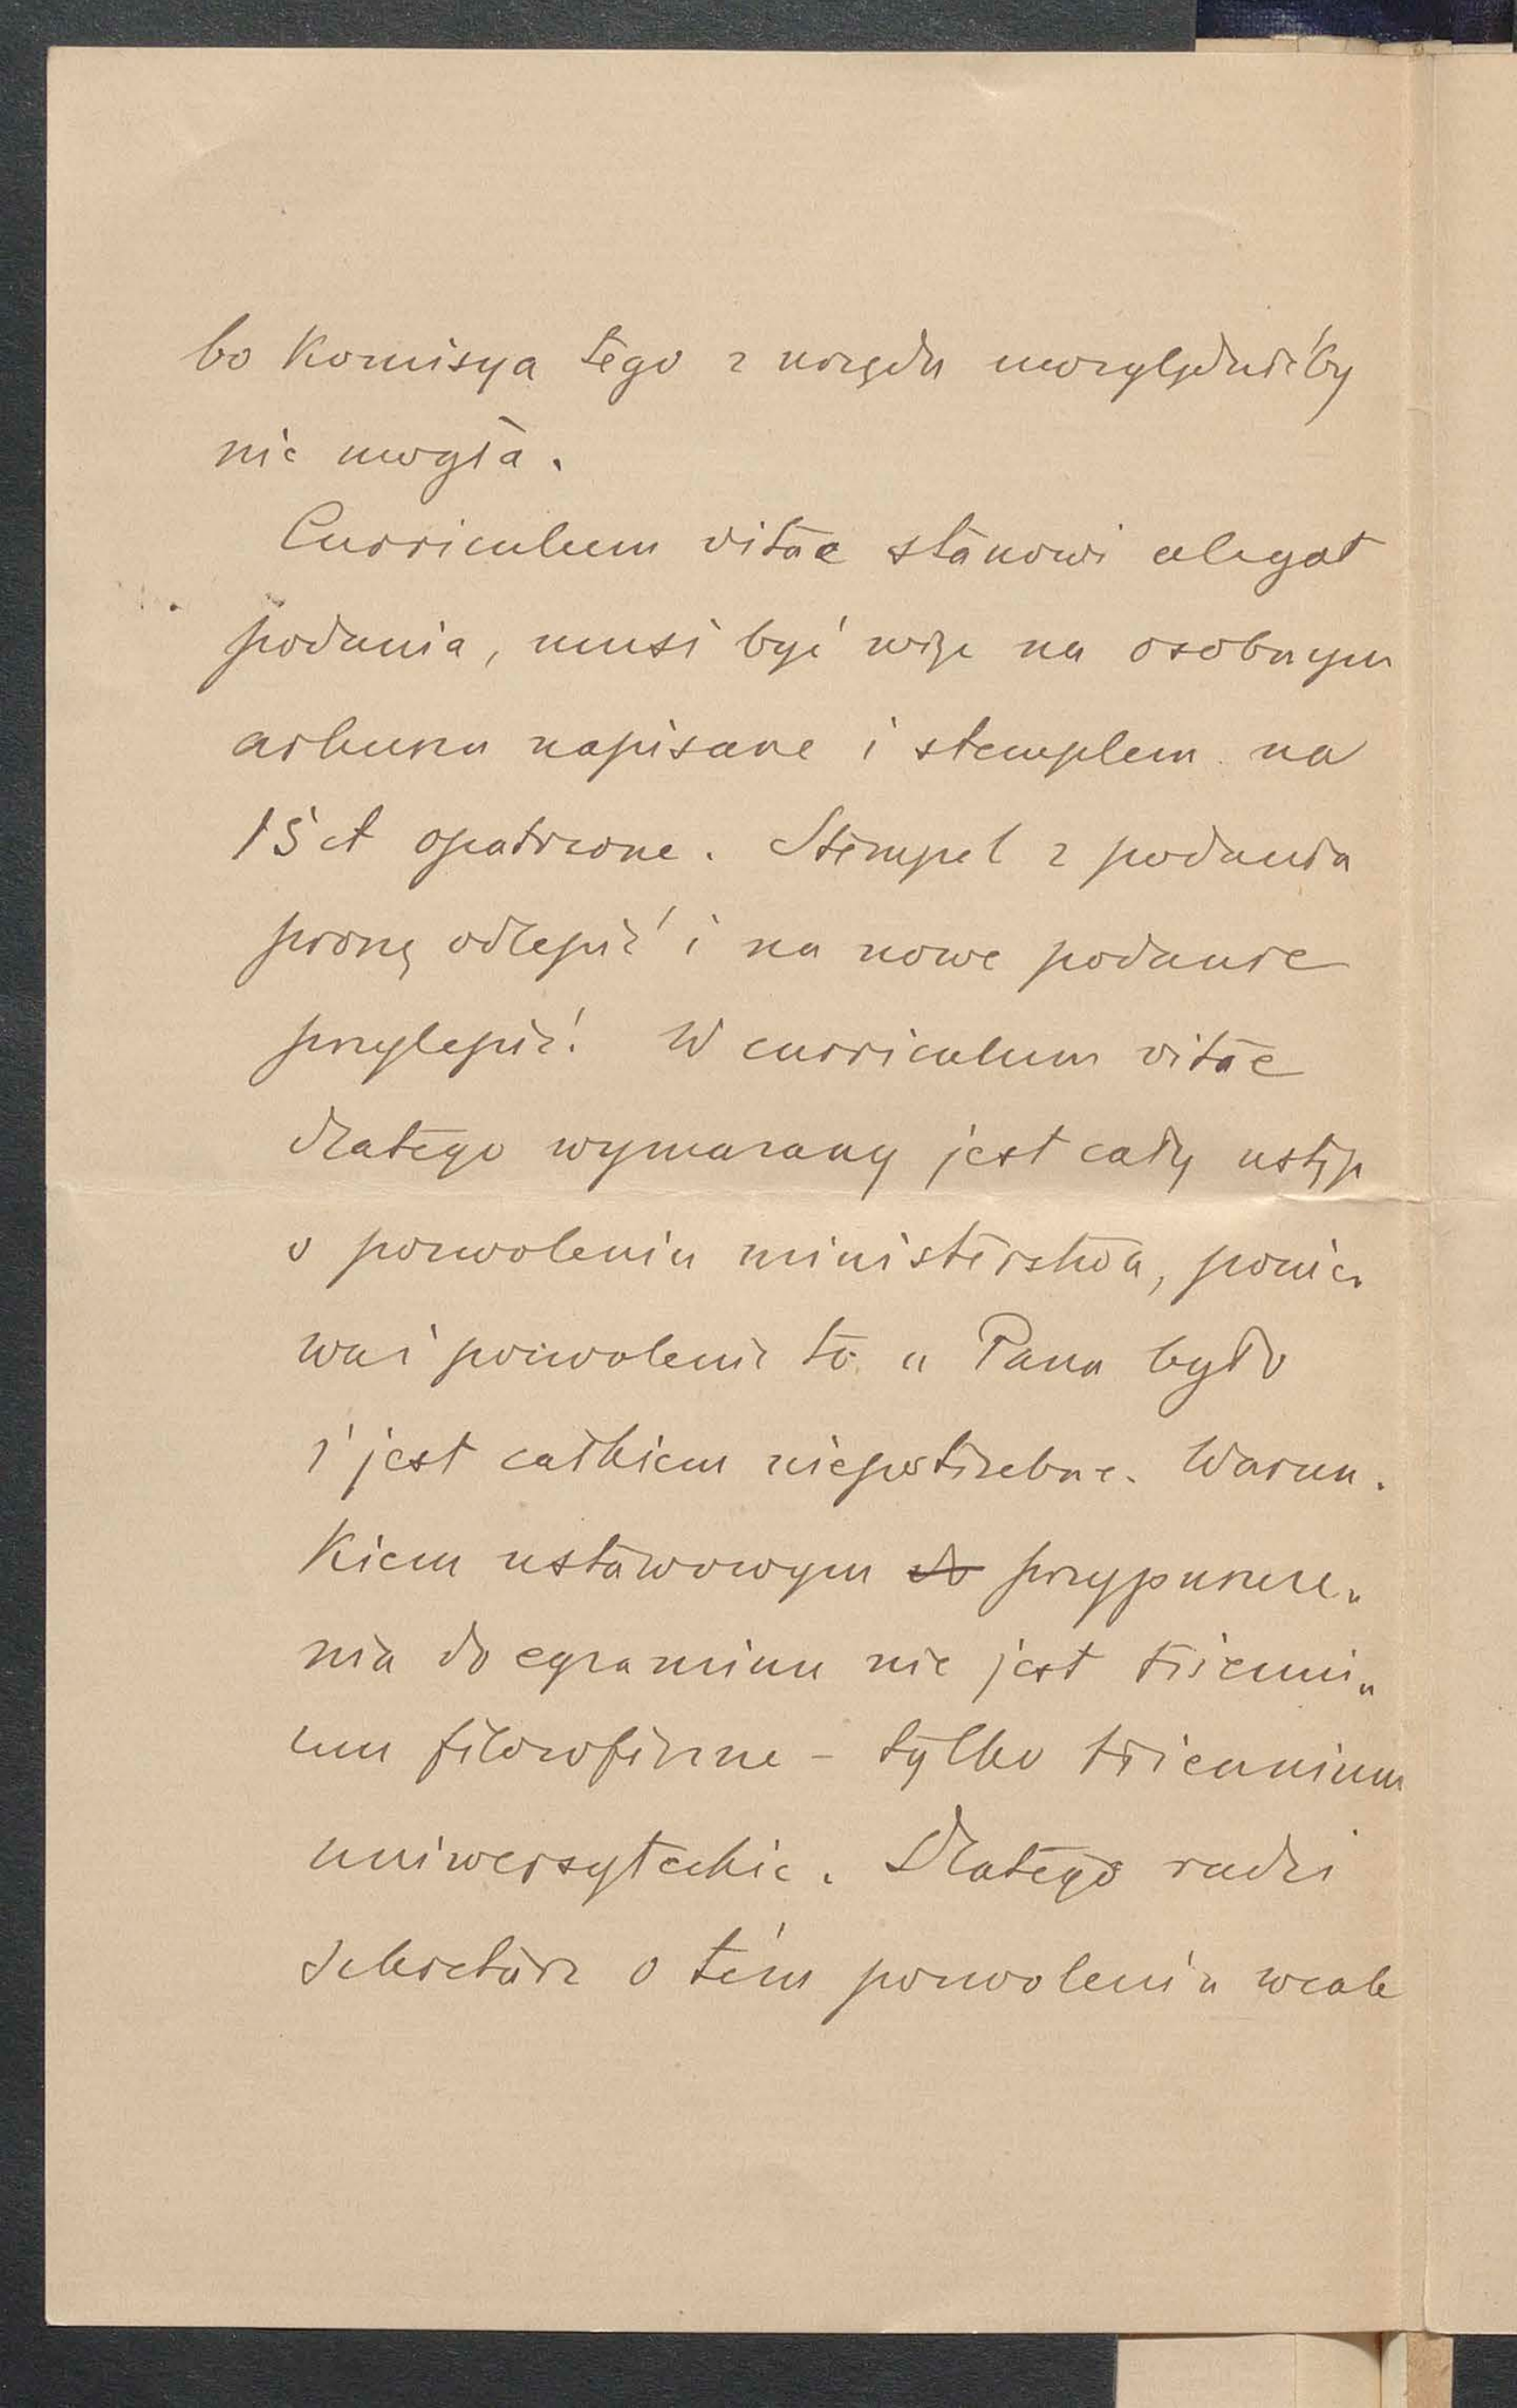 bo Komisya tego z urzędu uwzględnićby
nie mogła.
Curriculum vitae stanowi alegat
podania, musi być więc na osobnym
arkuszu napisane i stemplem na
15 ct opatrzone. Stempel z podania
proszę odlepić i na nowe podanie
przylepić. W curriculum vitae
dlatego wymazany jest cały ustęp
o pozwoleniu ministerstwa, ponie-
waż pozwolenie to u Pana było
i jest całkiem niepotrzebne. Warun-
kiem ustawowym do przypuszcze-
nia do egzaminu nie jest trienni-
um filozoficzne – tylko triennium
uniwersyteckie. Dlatego radzi
sekretarz o tém pozwoleniu wcale